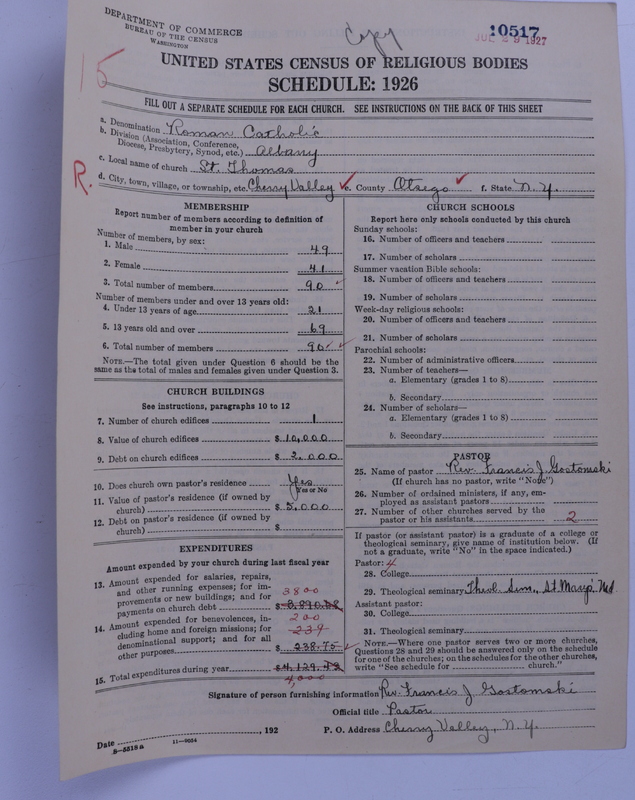 DEPARTMENT OF COMMERCE
BUREAU OF THE CENSUS
WASHINGTON
Copy
10517
JUL 29 1927
15
UNITED STATES CENSUS OF RELIGIOUS BODIES
SCHEDULE: 1926
FILL OUT A SEPARATE SCHEDULE FOR EACH CHURCH. SEE INSTRUCTIONS ON THE BACK OF THIS SHEET
a. Denomination Roman Catholic
b. Division (Association, Conference,
Diocese, Presbytery, Synod, etc.) Albany
c. Local name of church St. Thomas
R.
d. City, town, village, or township, etc. Cherry Valley e. County Otsego f. State N.Y.
MEMBERSHIP
Report number of members according to definition of
member in your church
Number of members, by sex:
1. Male 49
2. Female 41
3. Total number of members 90
Number of members under and over 13 years old:
4. Under 13 years of age 21
5. 13 years old and over 69
6. Total number of members 90
NOTE.—The total given under Question 6 should be the
same as the total of males and females given under Question 3.
CHURCH BUILDINGS
See instructions, paragraphs 10 to 12
7. Number of church edifices 1
8. Value of church edifices $ 10,000
9. Debt on church edifices $ 2,000
10. Does church own pastor's residence Yes
Yes or No
11. Value of pastor's residence (if owned by
church) $ 5,000
12. Debt on pastor's residence (if owned by
church) $
EXPENDITURES
Amount expended by your church during last fiscal year
13. Amount expended for salaries, repairs,
and other running expenses; for im-
provements or new buildings; and for
3800
payments on church debt $
14. Amount expended for benevolences, in-
200
cluding home and foreign missions; for
239
denominational support; and for all
other purposes $ 238.75
15. Total expenditures during year $
4,000
CHURCH SCHOOLS
Report here only schools conducted by this church
Sunday schools:
16. Number of officers and teachers
17. Number of scholars
Summer vacation Bible schools:
18. Number of officers and teachers
19. Number of scholars
Week-day religious schools:
20. Number of officers and teachers
21. Number of scholars
Parochial schools:
22. Number of administrative officers
23. Number of teachers—
a. Elementary (grades 1 to 8)
b. Secondary
24. Number of scholars—
a. Elementary (grades 1 to 8)
b. Secondary
PASTOR
25. Name of pastor Rev. Francis J. Gostomski
(If church has no pastor, write "None")
26. Number of ordained ministers, if any, em-
ployed as assistant pastors
27. Number of other churches served by the
pastor or his assistants 2
If pastor (or assistant pastor) is a graduate of a college or
theological seminary, give name of institution below. (If
not a graduate, write "No" in the space indicated.)
Pastor: 4
28. College
29. Theological seminary Theol. Sem., St. Mary's Md.
Assistant pastor:
30. College
31. Theological seminary
NOTE.—Where one pastor serves two or more churches,
Questions 28 and 29 should be answered only on the schedule
for one of the churches; on the schedules for the other churches,
write "See schedule for church."
Signature of person furnishing information Rev. Francis J. Gostomski
Official title Pastor
Date , 192 P. O. Address Cherry Valley, N.Y.
8-5518a 11-9054